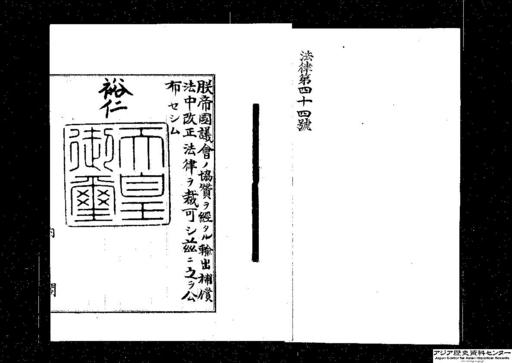 法律第四十四號
朕帝國議會ノ協贊ヲ經タル輸出補償
法中改正法律ヲ裁可シ茲ニ之ヲ公
布セシム
裕仁
天皇御璽
内閣
アジア歴史資料センター
Japan Center for Asian Historical Records